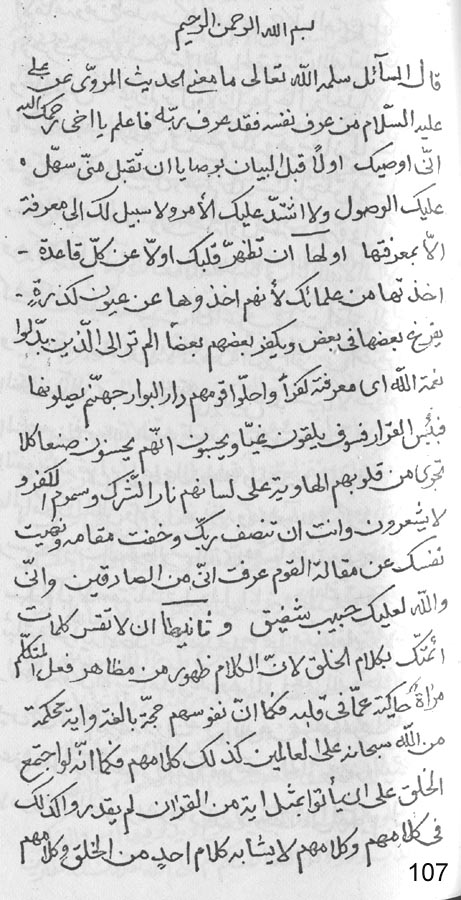 بسم الله الرحمن الرحيم
قال السآئل سلمه الله تعالى ما معنى الحديث المروّى عن على
عليه السّلام من عرف نفسه فقد عرف ربّه فاعلم يا اخى رحمك الله
انّى اوصيك اولاً قبل البيان بوصايا ان تقبل منّى سهّل
عليك الوصول ولا اشتدّ عليك الأمر ولا سبيل لك الى معرفة
الاّ بمعرفتها اولها ان تطهرّ قلبك اولاّ عن كلّ قاعدة
اخذتها من علمائك لأنهم اخذوها عن عيون كدرة
يفرغ بعضها فى بعض ويكفر بعضهم بعضاً الم تر الى الّذين بدّلوا
نعمة الله اى معرفة كفراً واحلّوا قومهم دار البوار جهنّم يصلونها
فبئس القرار فسوف يلقون غيّا ويحسبون انّهم يحسنون صنعا كلا
تجرى من قلوبهم الهاوية على لسانهم نار الشّرك وسموم الكفر و
لا يشعرون وانت ان تنصف ربّك وخفت مقامه ونهيت
نفسك عن مقالة القوم عرفت انّى من الصادقين وانّى
والله لعليك حبيب شفيق وثانيها ان لا تقس كلمات
ائمّتك بكلام الخلق لانّ الكلام ظهور من مظاهر فعل المتكلّم
مرآة حاكية عمّا فى قلبه فكما انّ نفوسهم حجّة بالغة واية محكمة
من الله سبحانه على العالمين كذلك كلامهم فكما انّه لو اجتمع
الخلق على ان يأتوا بمثل اية من القران لم يقدروا كذلك
فى كلامهم وكلامهم لا يشابه كلام احد من الخلق وكلامهم
107